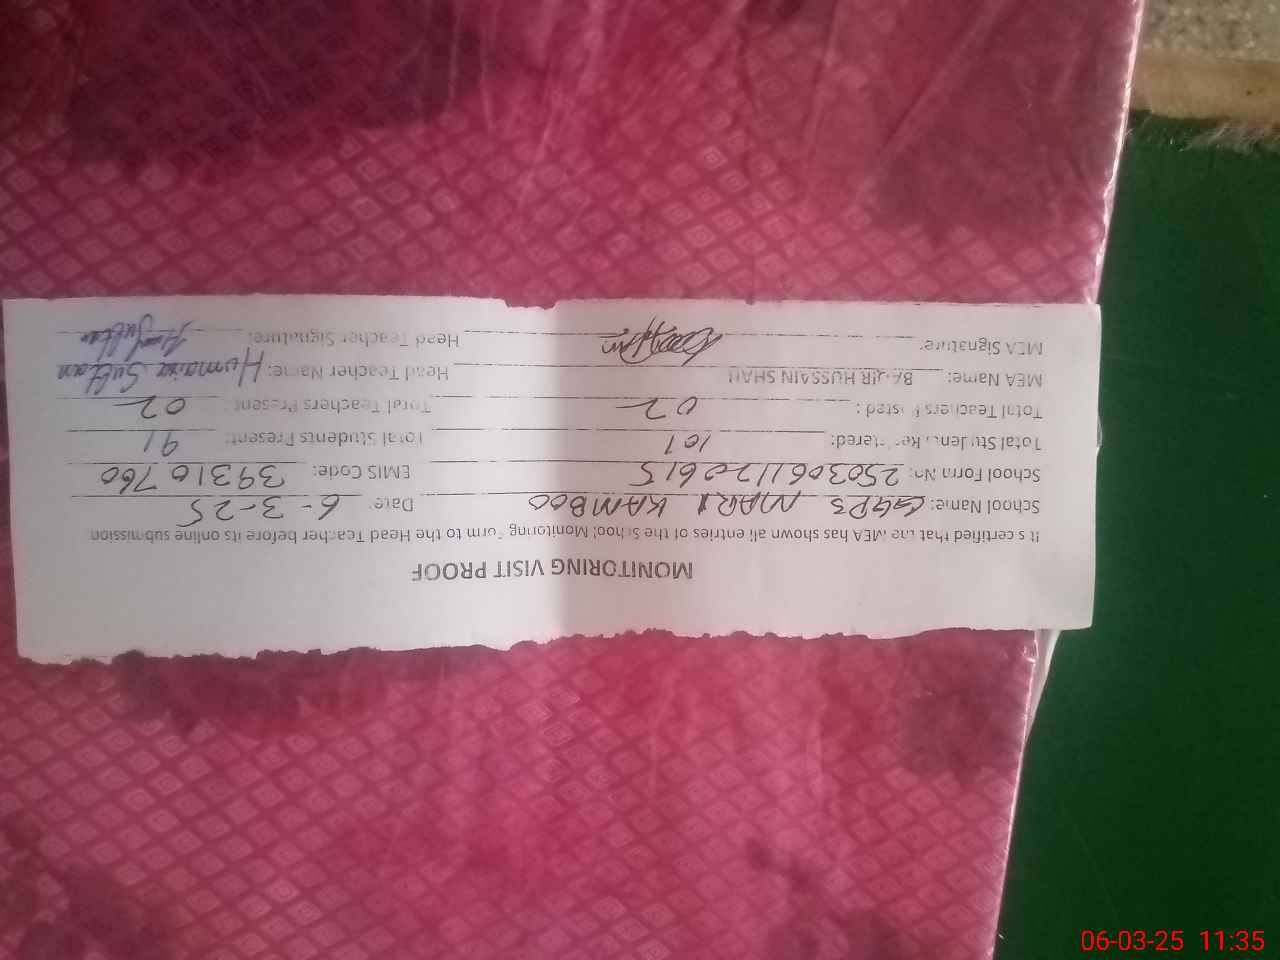 MONITORING VISIT PROOF
It s certified that the MEA has shown all entries of the School Monitoring Form to the Head Teacher before its online submission
School Name: GGPS MARI KAMBOO Date: 6-3-25
School Form No: 2503061120615 EMIS Code: 39310760
Total Students Registered: 101 Total Students Present: 91
Total Teachers Posted: 02 Total Teachers Present: 02
MEA Name: HUSSAIN SHAH Head Teacher Name: Humaira Sultan
MEA Signature: Head Teacher Signature:
06-03-25 11:35